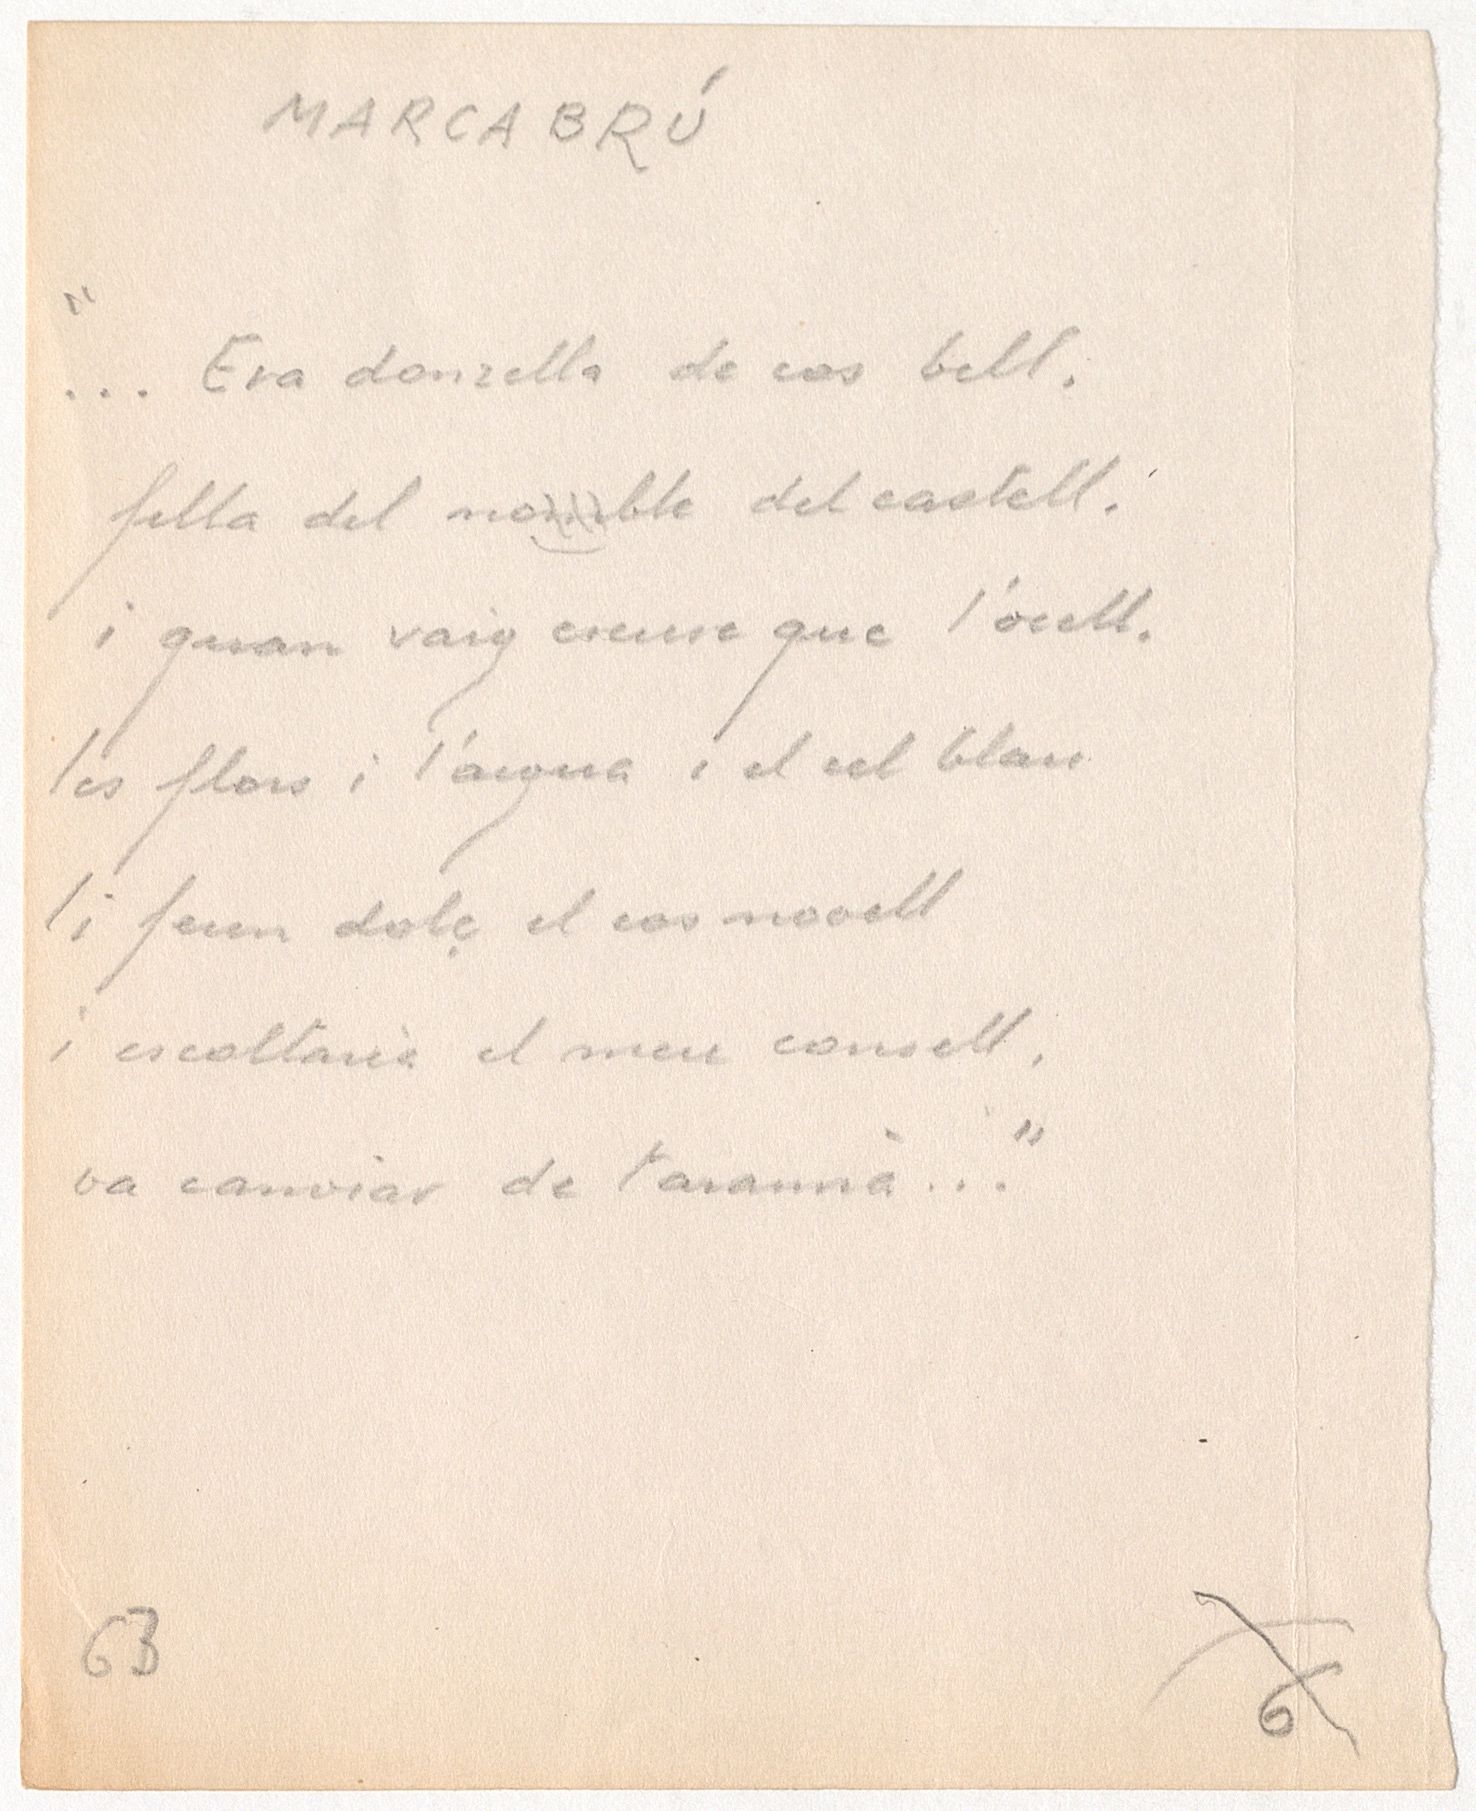 MARCABRÚ
"
... Era donzella de cos bell.
filla del noble del castell.
i quan vaig creure que l'ocell.
les flors i l'aigua i el cel blau
li feien dolç el cos novell
i escoltaria el meu consell,
va canviar de tarannà..."
63
6